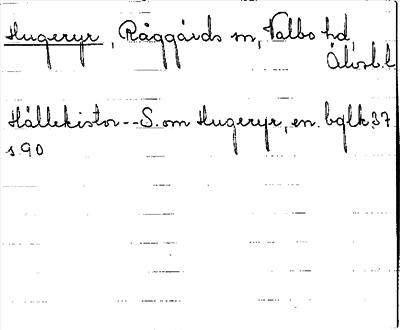 Hugeryr, Råggärds sn, Valbo hd,
Älvsb.l
Hällekistor--S.om Hugeryr, en. bglk 37
s.90